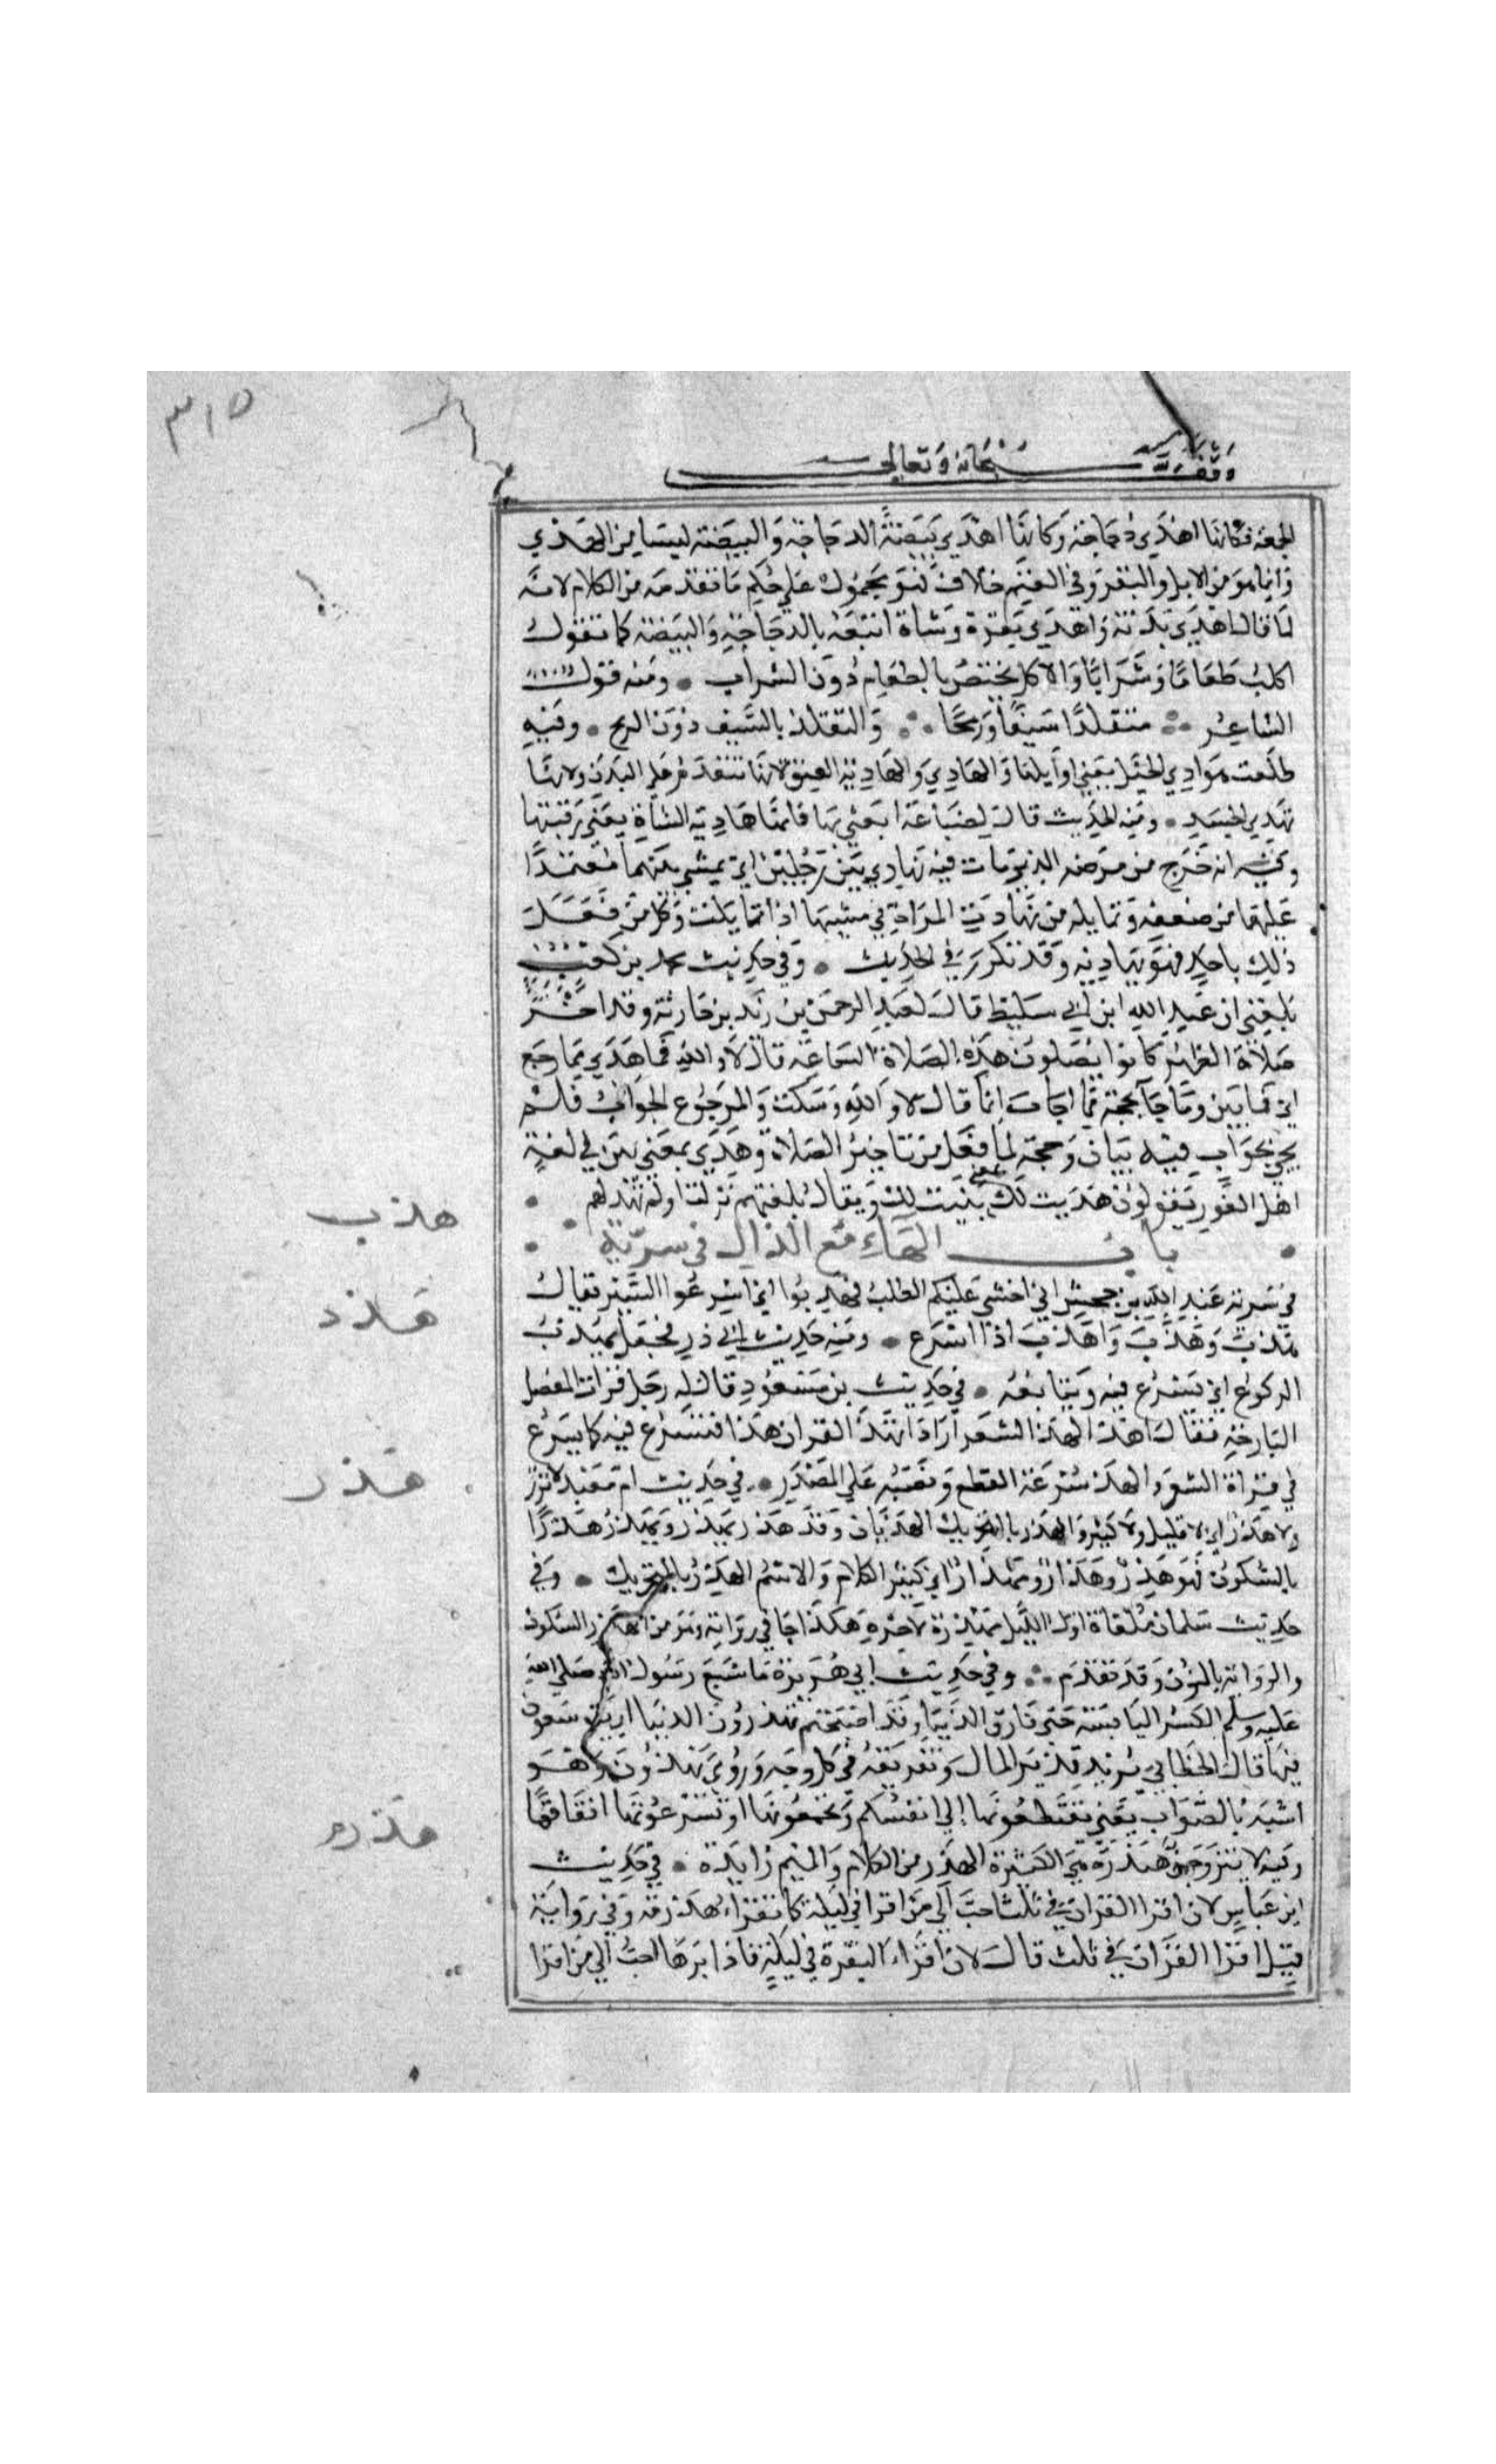 ٣١٥
وقف لله سبحانه وتعالى
الجمعة فكانما اهدي دجاجة وكانما اهدي بيضة الدجاجة والبيضة ليستا من الهدي
وانما هو من الابل والبقر وفي الغنم خلاف فهو محمول على حكم ما تقدمه من الكلام لانه
لما قال اهدي بدنة واهدي بقرة وشاة اتبعه بالدجاجة والبيضة كما تقول
اكلت طعاما وشرابا والاكل يختص بالطعام دون الشراب ۰ ومنه قول
الشاعر ∴ متقلدا سيفا ورمحا ∴ والتقلد بالسيف دون الرمح ۰ وفيه
طلعت هوادي الخيل يعني اوايلها والهادي والهادية العنق لانها تتقدم على البدن ولانها
تهدي الجسد ۰ ومنه الحديث قال لضباعة ابعثي بها فانها هادية الشاة يعني رقبتها
وفيه انه خرج من مرضه الذي مات فيه تهادي بين رجلين اي يمشي بينهما معتمدا
عليهما من ضعفه وتمايله من تهادت المراة في مشيها اذا تمايلت وكل من فعل
ذلك باحد فهو يهاديه وقد تكرر في الحديث ۰ وفي حديث محمد بن كعب
بلغني ان عبد الله ابن ابي سليط قال لعبد الرحمن بن زيد بن حارثة وقد اخر
صلاة الظهر اكانوا يصلون هذه الصلاة الساعة قال لا والله فما هدي مما رجع
اي فما بين وما جا بحجة مما اجاب انما قال لا والله وسكت والمرجوع الجواب فلم
يجي بجواب فيه بيان وحجة لما فعل من تاخير الصلاة وهدي بمعني بين في لغة
اهل الغور يقولون هديت لك بمعني بينت لك ويقال بلغتهم نزلت اولم نهد لهم ۰
باب الهاء مع الذال في سرية
في سرية عبد الله بن جحش اني اخشي عليكم الطلب فهذبوا اي اسرعوا السير يقال
هذب وهذب واهذب اذا اسرع ۰ ومنه حديث ابي ذر فجعل يهذب
الركوع اي يسرع فيه ويتابعه ۰ في حديث بن مسعود قال له رجل قرات المفصل
البارحة فقال اهذا كهذ الشعر اراد اتهذ القران هذا فتسرع فيه كما يسرع
في قراة الشعر والهذ سرعة القطع ونصبه على المصدر ۰ في حديث ام معبد لا نزر
ولا هذر اي لا قليل ولا كثير والهذر بالتحريك الهذيان وقد هذر يهذر ويهذر هذرا
بالسكون فهو هذر وهذار ومهذار اي كثير الكلام والاسم الهذر بالتحريك ۰ وفي
حديث سلمان ملغاة اول الليل مهذرة لاخره هكذا جا في رواية وهو من الهذر السكون
والرواية بالنون وقد تقدم ∴ وفي حديث ابي هريرة ما شبع رسول الله صلى الله
عليه وسلم الكسر اليابسة حتى فارق الدنيا وقد اصبحتم تهذرون الدنيا اي تتوسعون
فيها قال الخطابي يريد تبذير المال وتفريقه في كل وجه وروي تهذون وهو
اشبه بالصواب يعني تقتطعونها الي انفسكم وتجمعونها او تسرعون انفاقها
وفيه لا تتزوجن هيذرة هي الكثيرة الهذر من الكلام والميم زايدة ۰ في حديث
ابن عباس لان اقرا القران في ثلث احب الي من اقرا في ليلة كما تقراء هذرمة وفي رواية
قيل اقرا القران في ثلث قال لان اقراء البقرة في ليلة فادبرها احب الي من اقرا
هذب
هذذ
هذر
هذرم